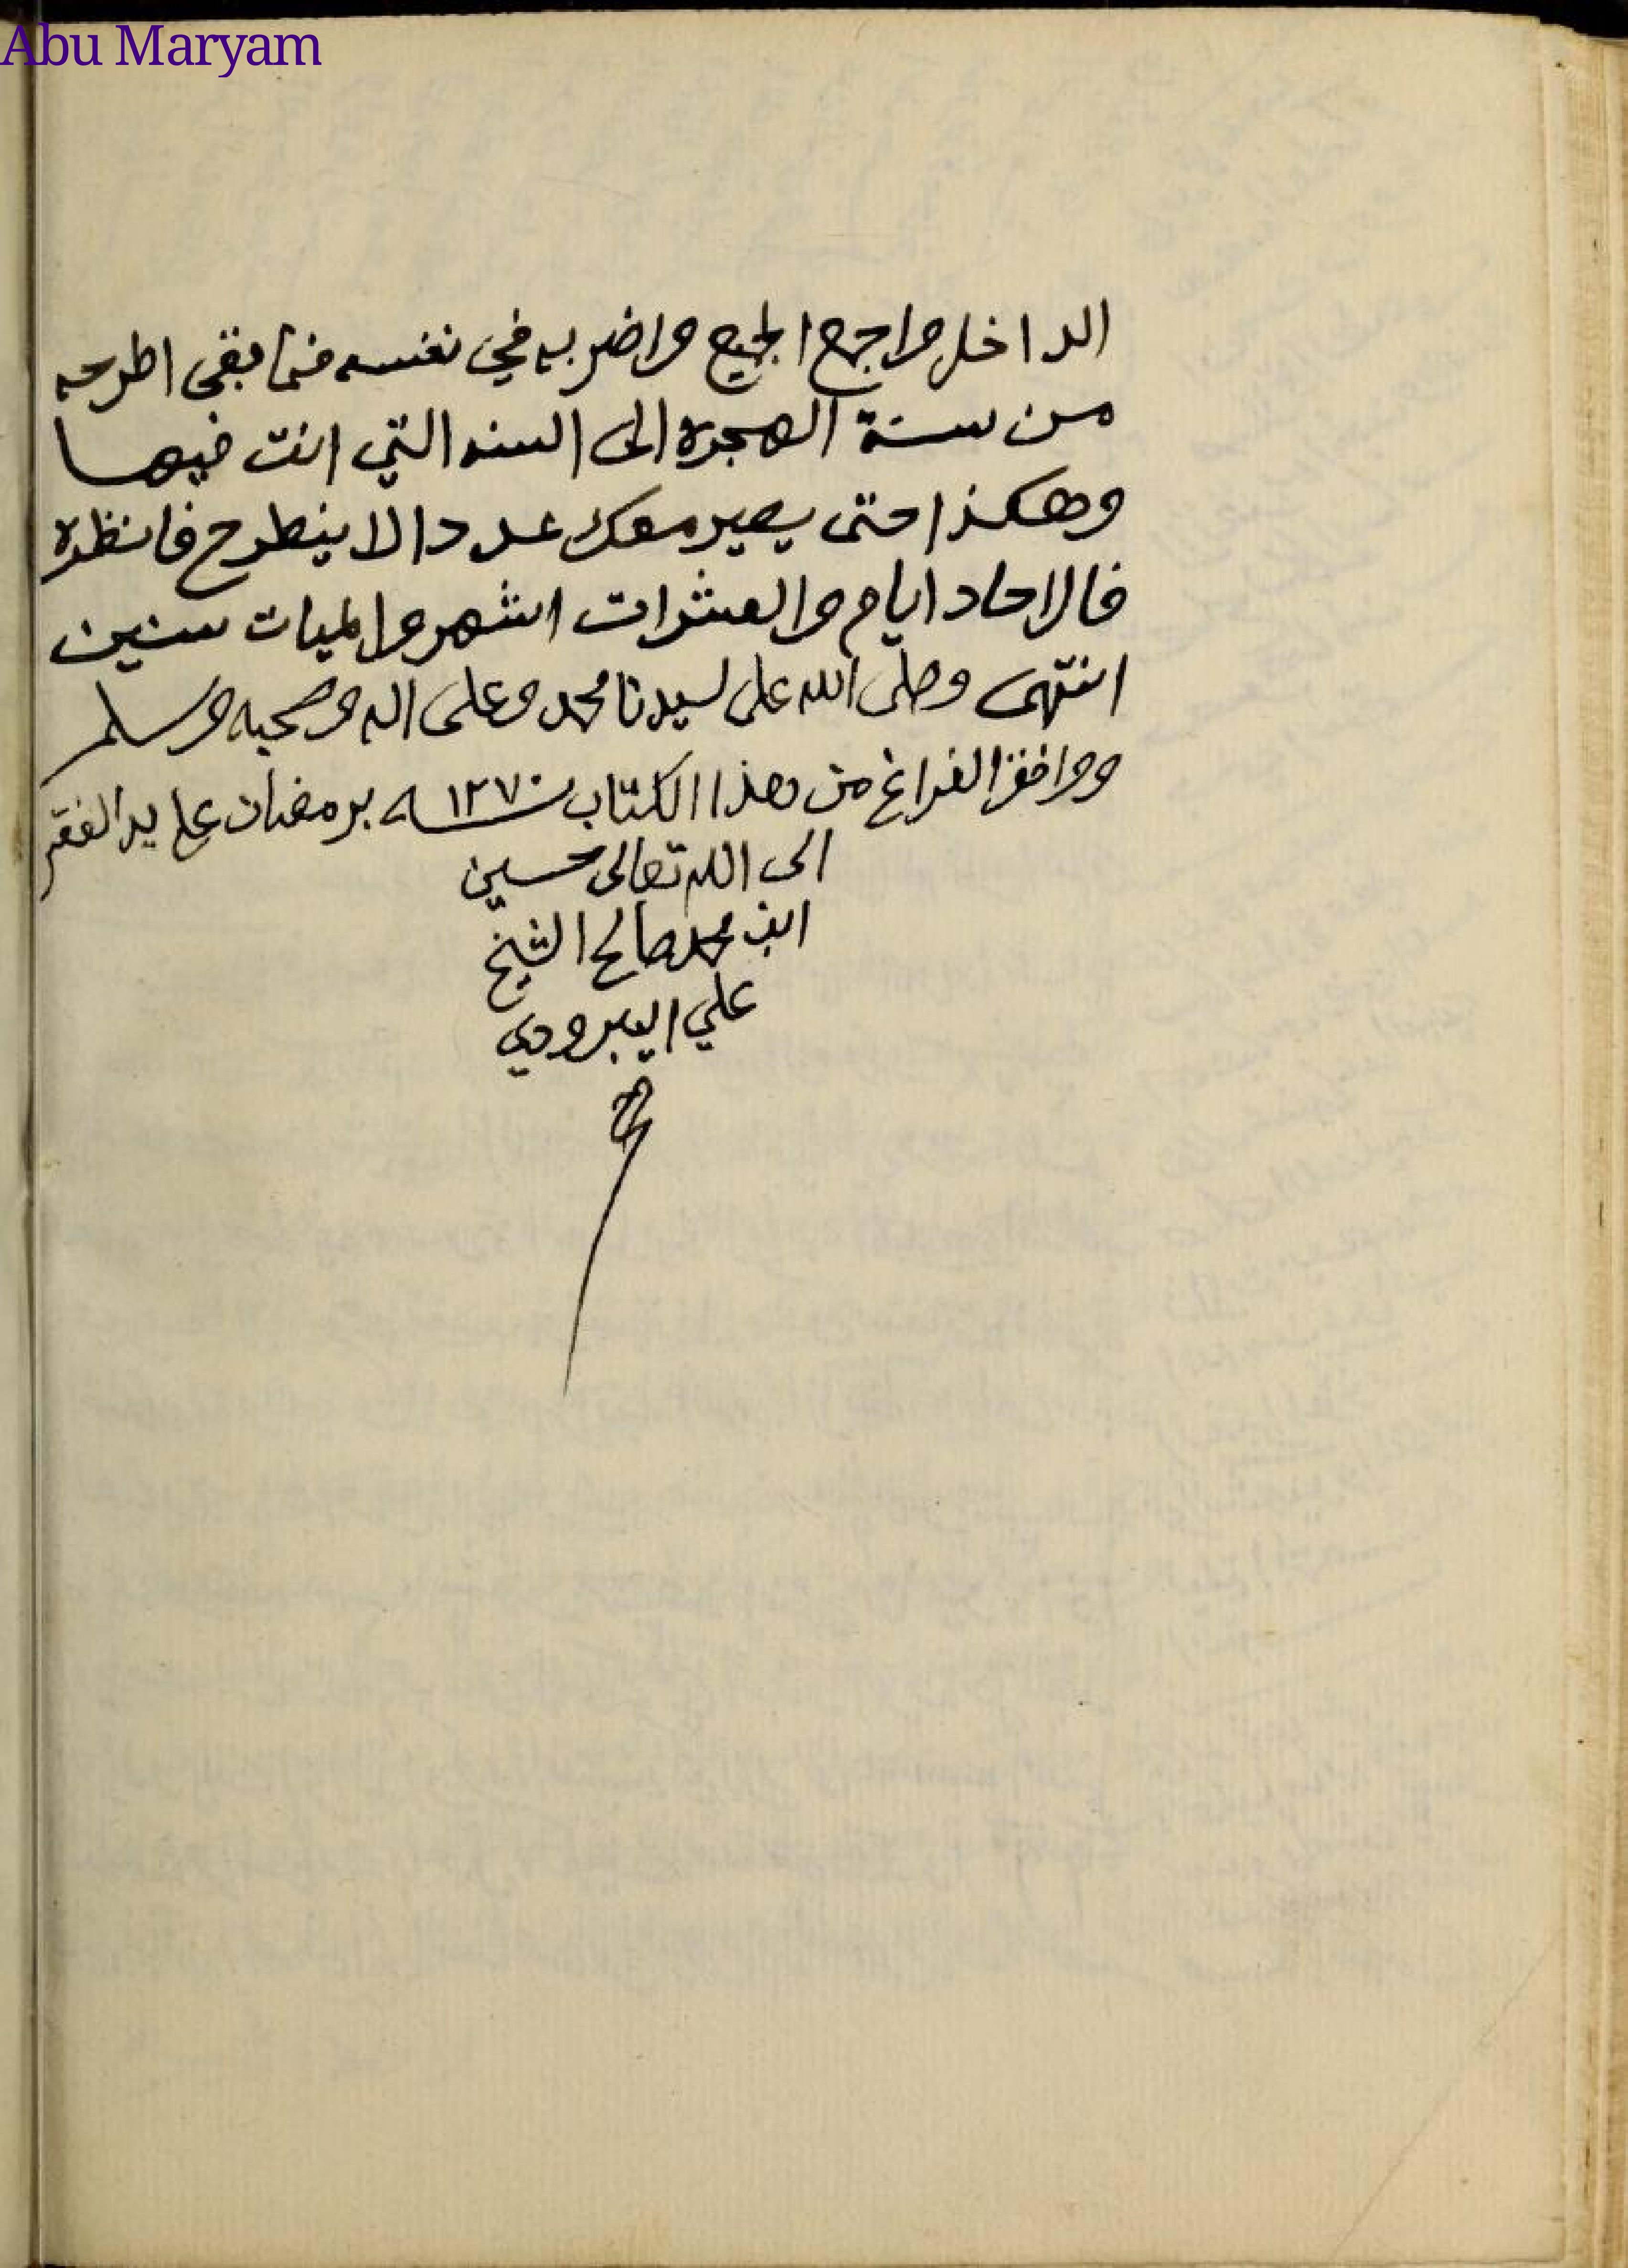 Abu Maryam
الداخل واجمع الجميع واضربه في نفسه فما بقى اطرحه
من سنة الهجره الى السنه التي انت فيها
وهكذا حتى يصير معك عددا لا ينطرح فانظره
فالاحاد ايام والعشرات اشهر والميات سنين
انتهى وصلى الله على سيدنا محمد وعلى اله وصحبه وسلم
ووافق الفراغ من هذا الكتاب سنه ١٢٧٠ برمضان على يد الفقير
الى الله تعالى حسين
ابن محمد صالح الشيخ
علي اليبرودي